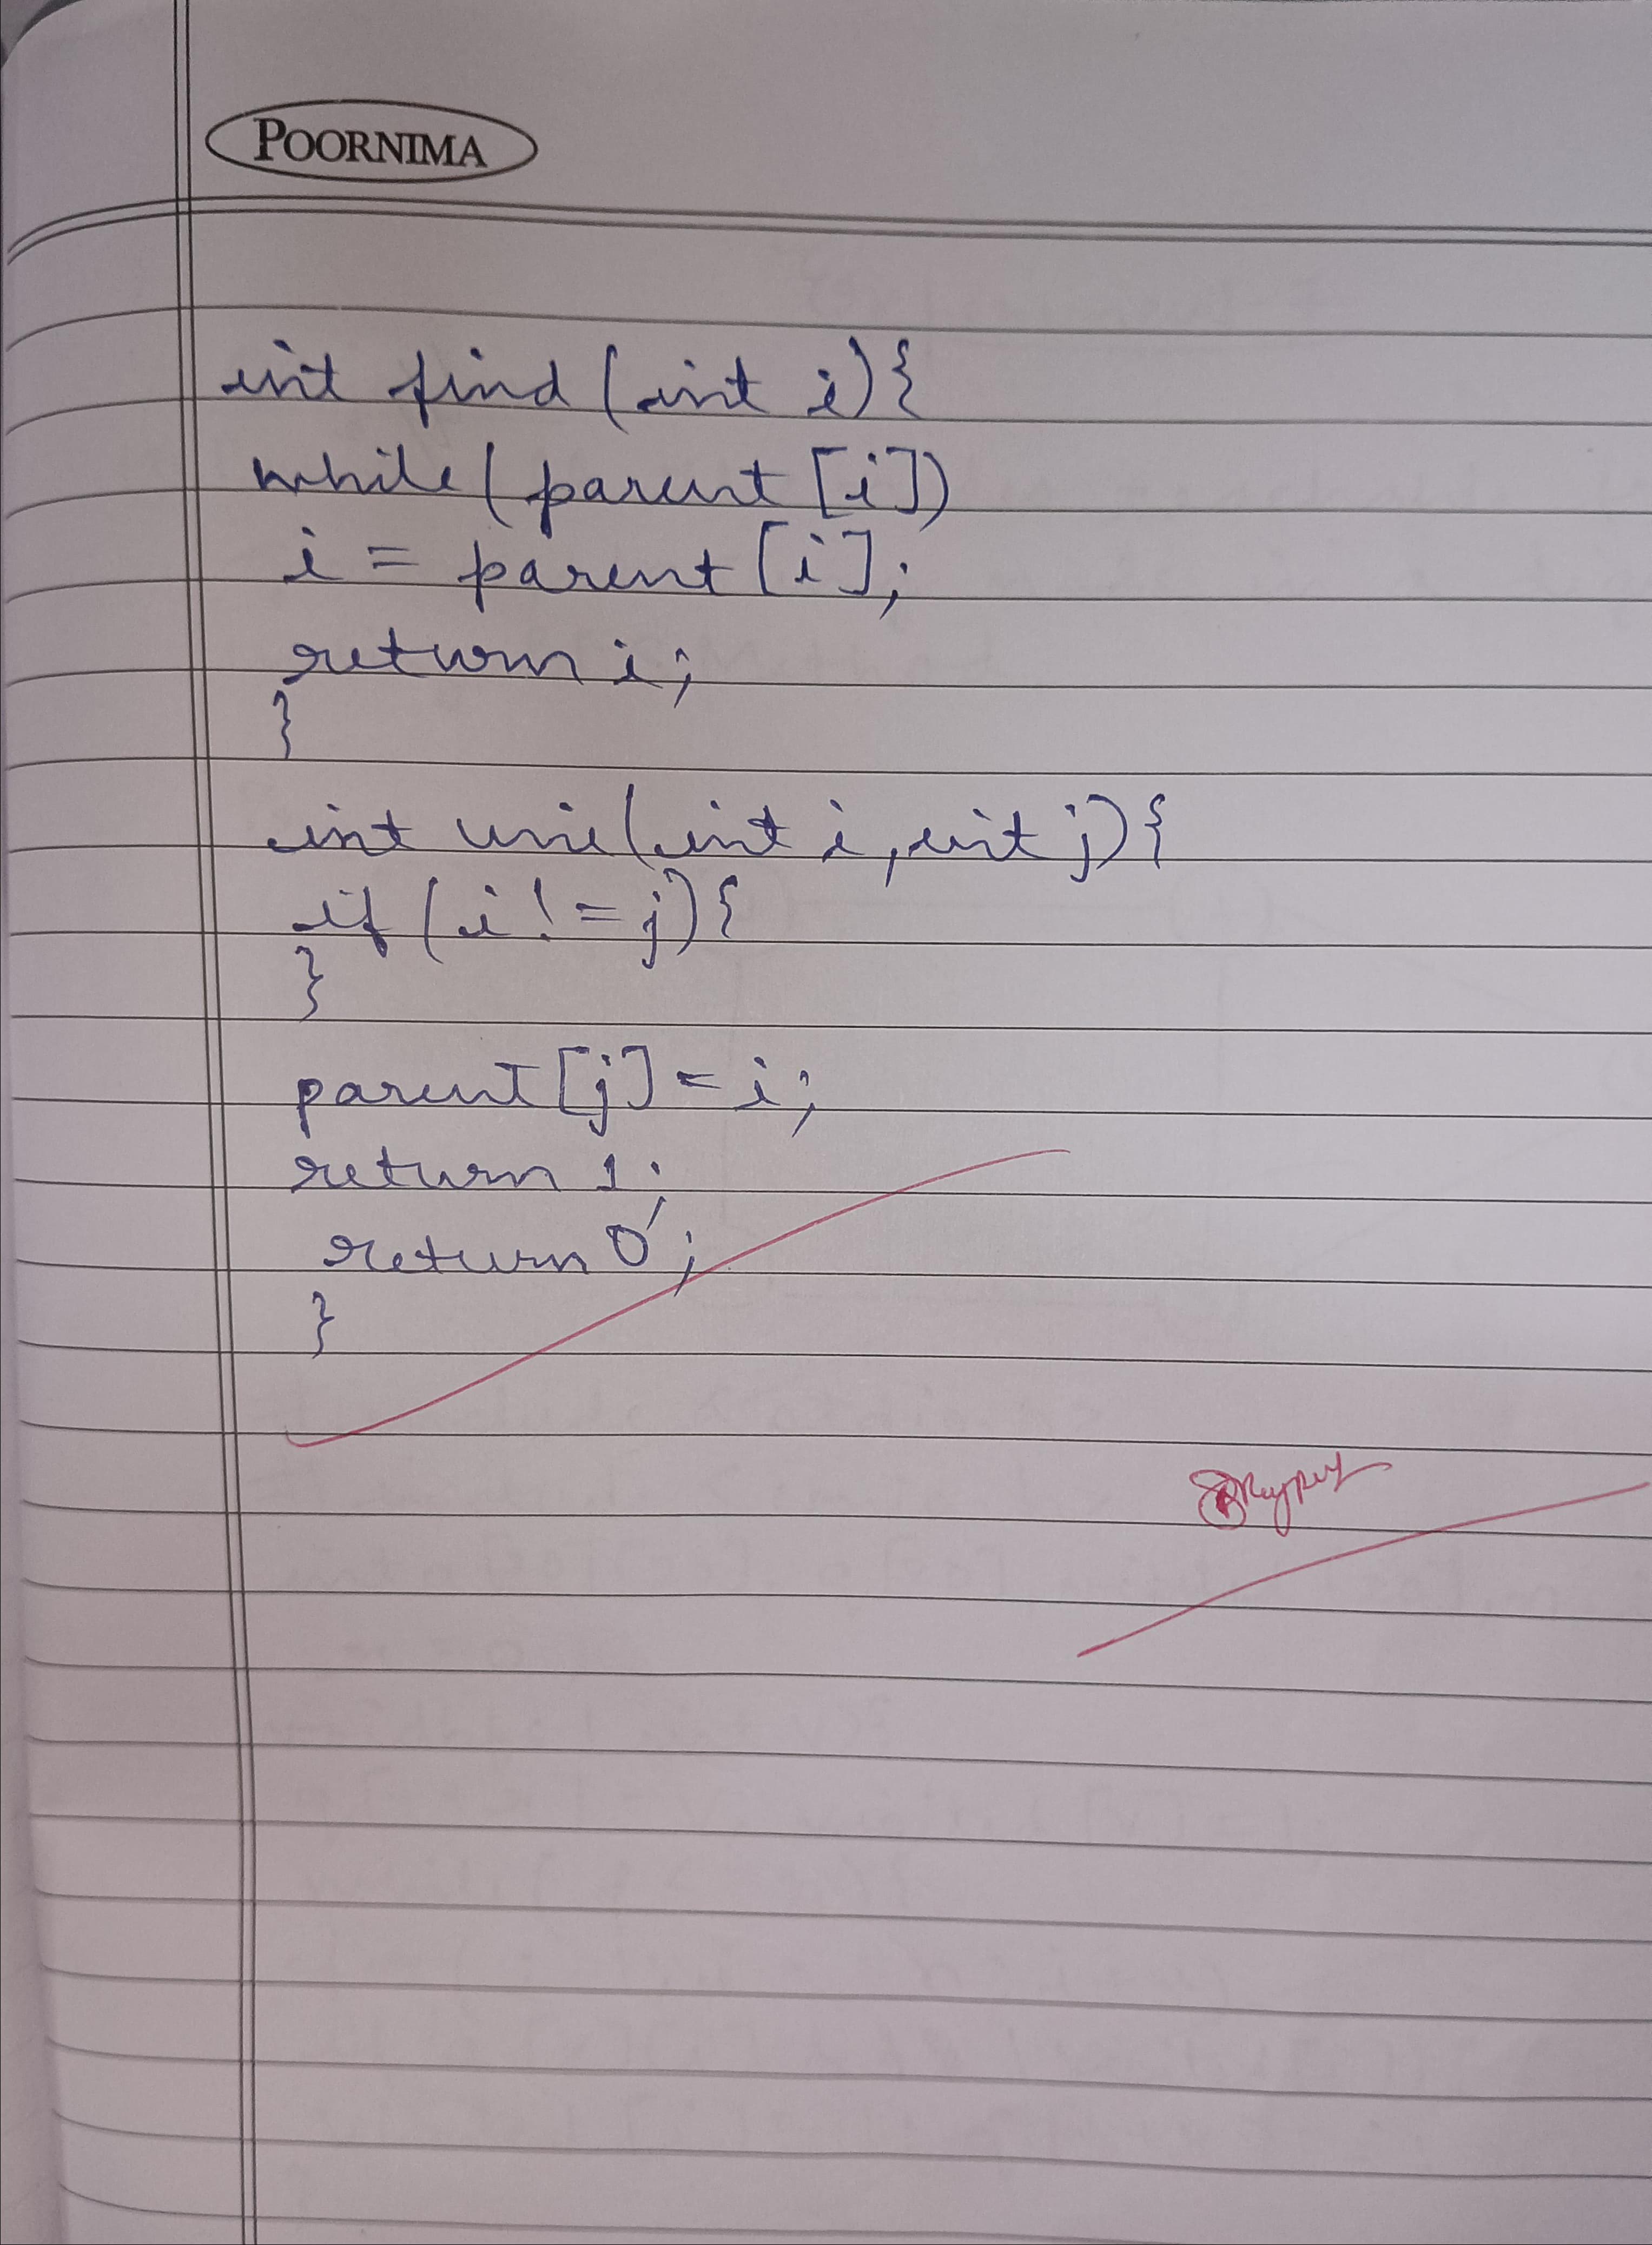 POORNIMA
int find (int i){
while (parent [i])
i = parent [i];
return i;
}
int uni (int i, int j){
if (i != j){
}
parent [j] = i;
return 1;
return 0;
}